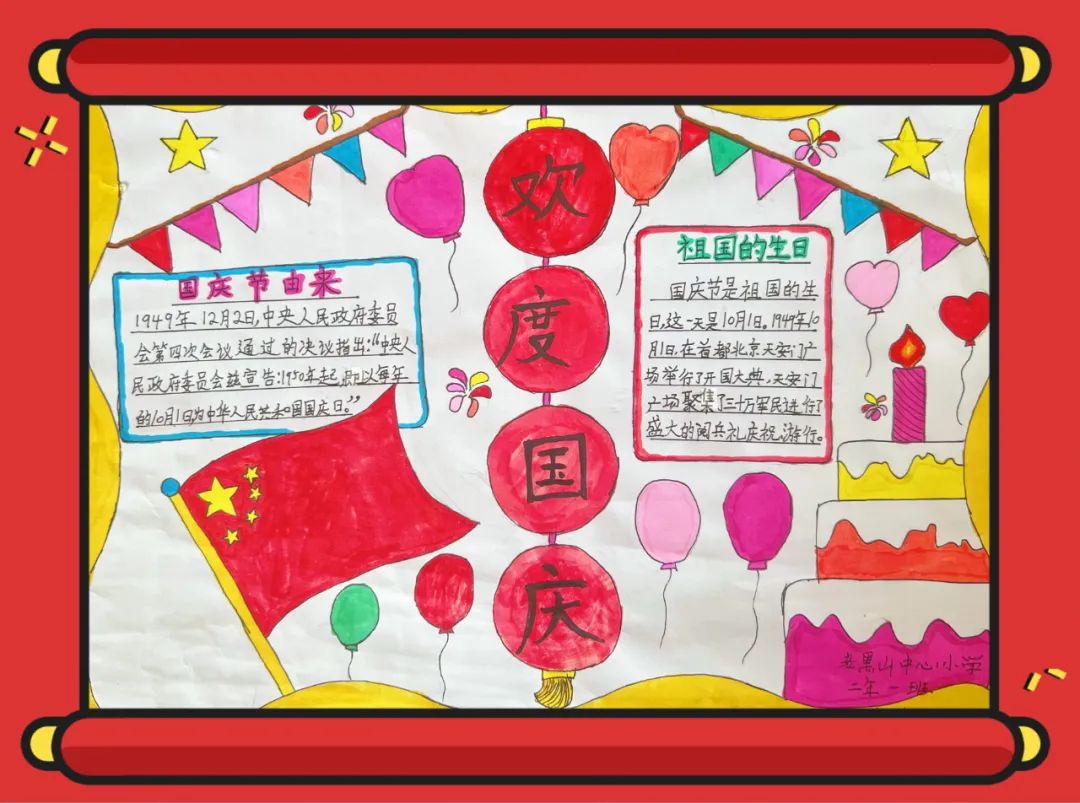 欢
度
国
庆
国庆节由来
1949年12月2日,中央人民政府委员
会第四次会议通过的决议指出:“中央人
民政府委员会兹宣告:1950年起,即以每年
的10月1日,为中华人民共和国国庆日。”
祖国的生日
国庆节是祖国的生
日,这一天是10月1日。1949年10
月1日,在首都北京天安门广
场举行了开国大典,天安门
广场聚集了三十万军民进行了
盛大的阅兵礼庆祝游行。
老黑山中心小学
二年一班